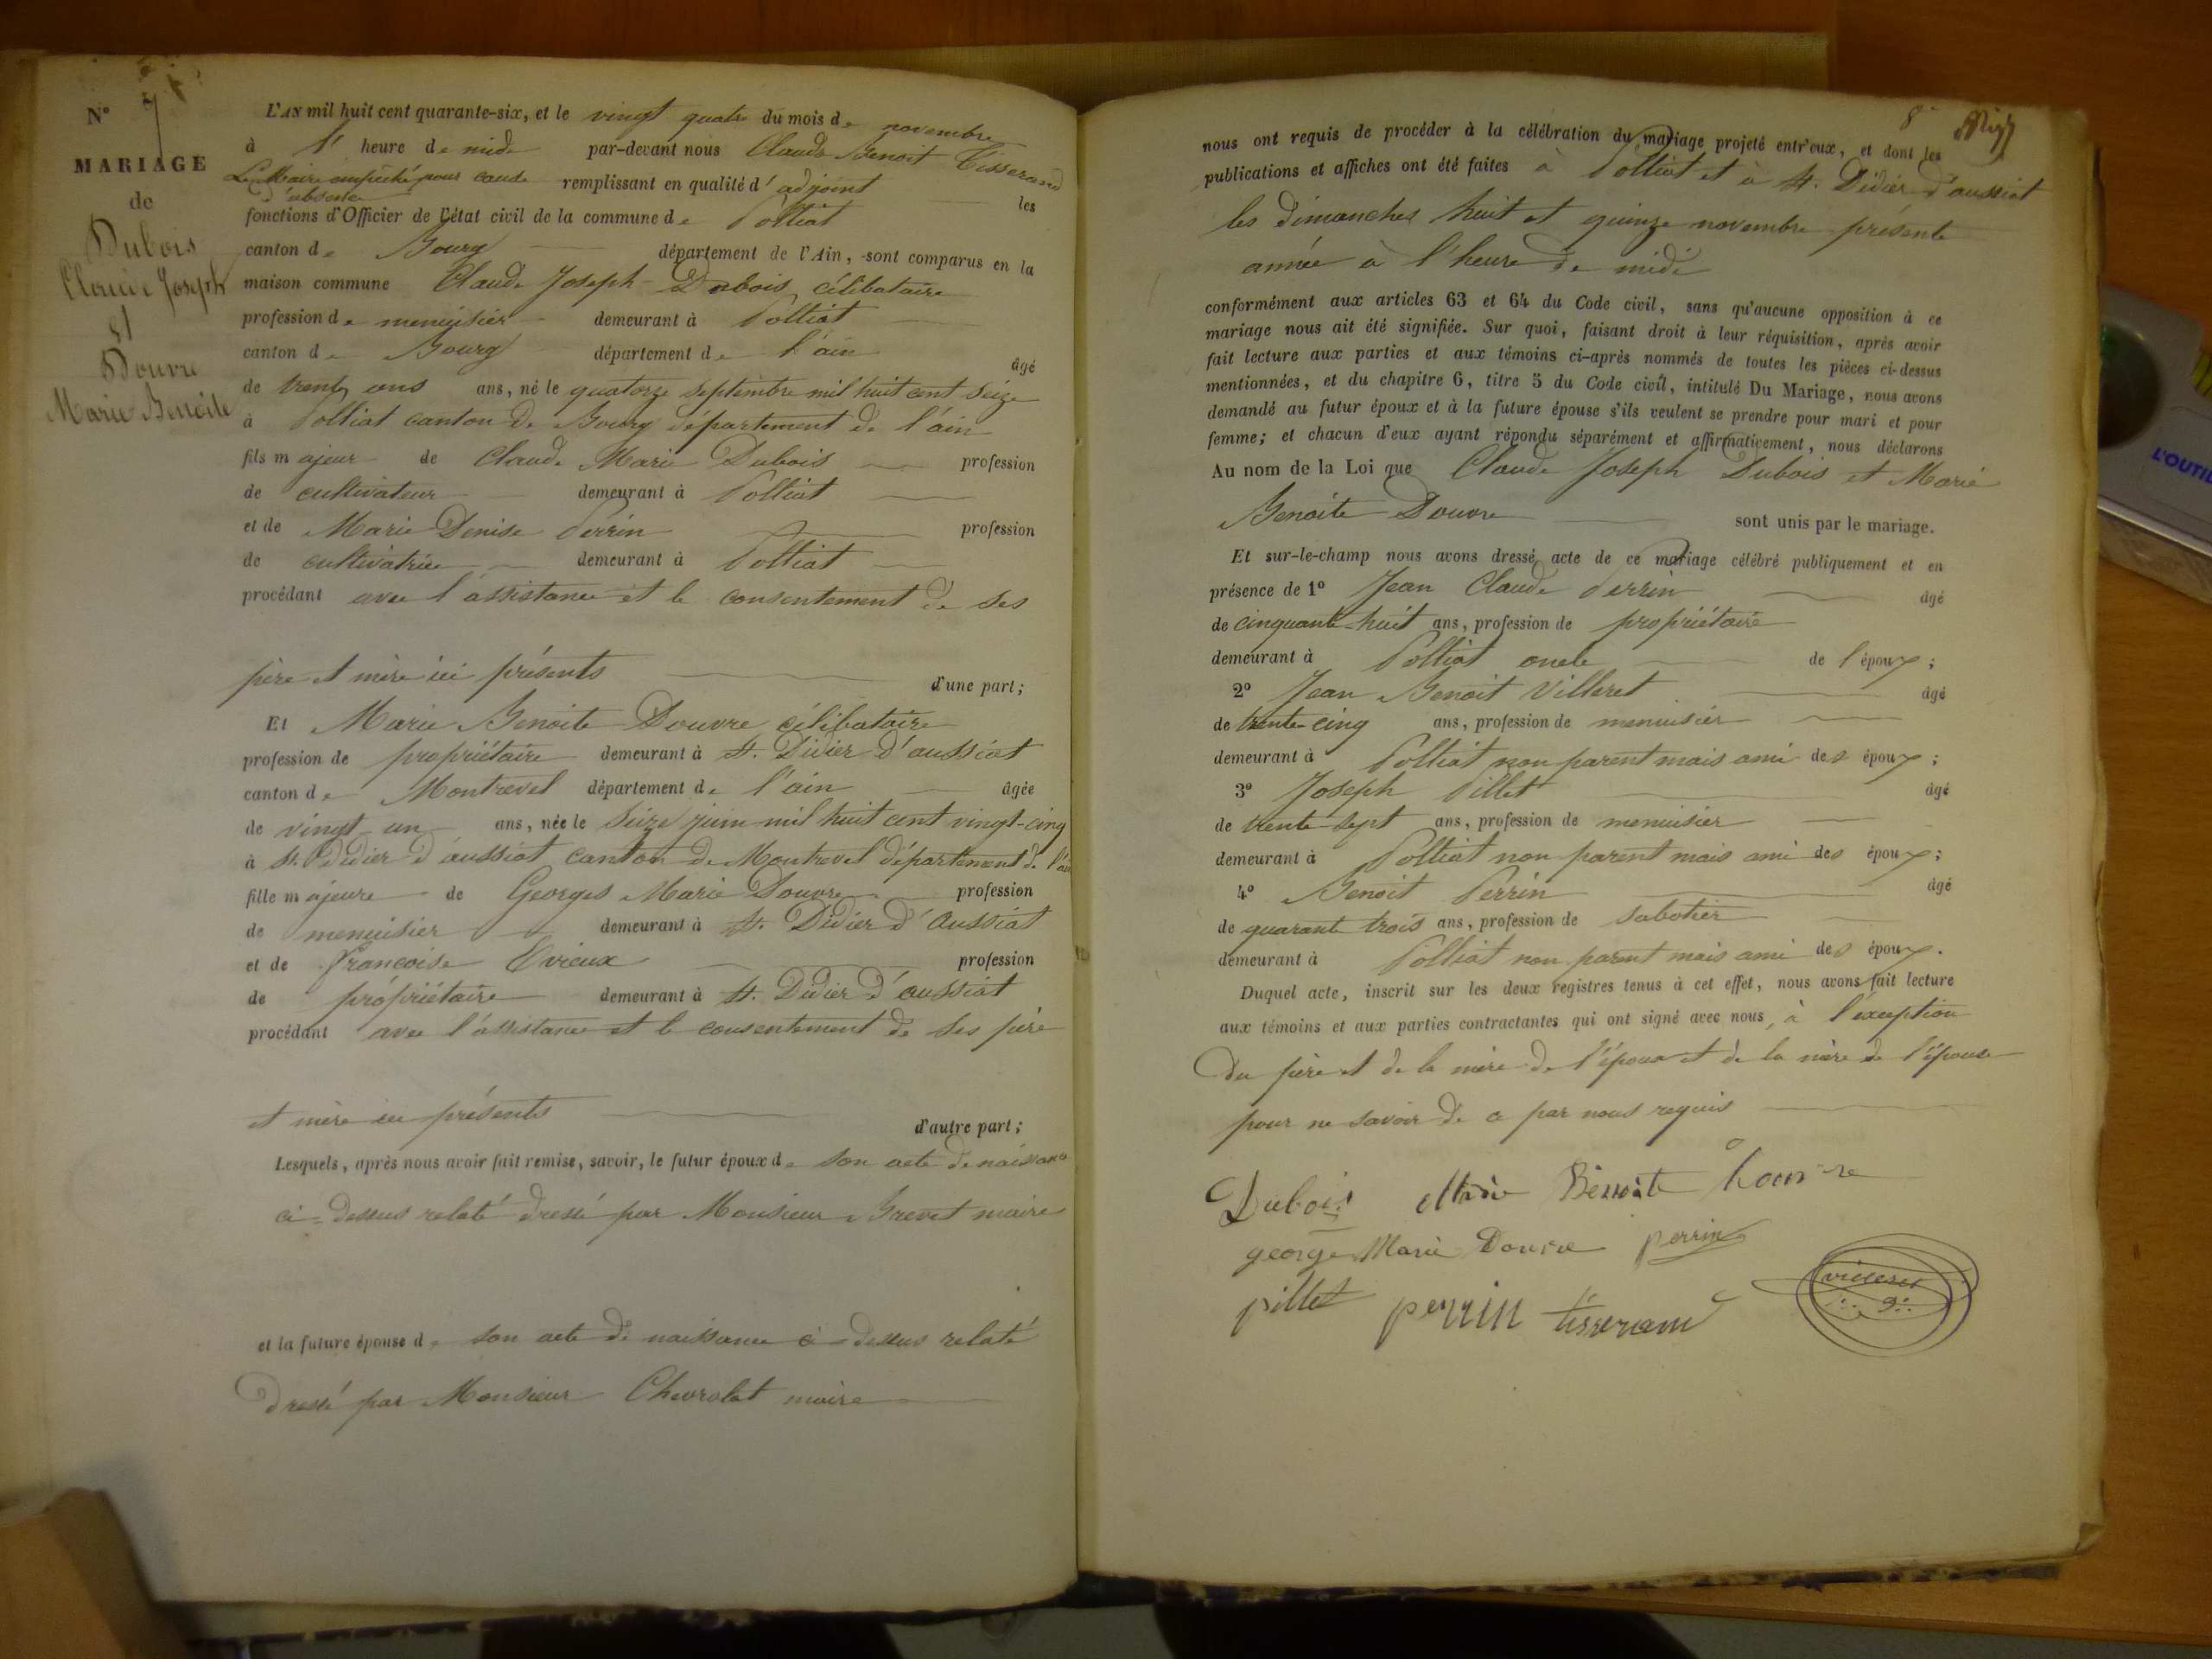 N° 7
MARIAGE
de
Dubois
Claude Joseph
et
Douvre
Marie Benoite
L'AN mil huit cent quarante-six, et le vingt quatre du mois de novembre
à l' heure de midi par-devant nous Claude Benoit Tisserand
Le Maire empêché pour cause d'absence remplissant en qualité d'adjoint les
fonctions d'Officier de l'état civil de la commune de Polliat
canton de Bourg département de l'Ain, sont comparus en la
maison commune Claude Joseph Dubois célibataire
profession de menuisier demeurant à Polliat
canton de Bourg département de l'ain âgé
de trente ans ans, né le quatorze septembre mil huit cent seize
à Polliat canton de Bourg département de l'ain
fils majeur de Claude Marie Dubois profession
de cultivateur demeurant à Polliat
et de Marie Denise Perrin profession
de cultivatrice demeurant à Polliat
procédant avec l'assistance et le consentement de ses
père et mère ici présents d'une part;
Et Marie Benoite Douvre célibataire
profession de propriétaire demeurant à St. Didier d'aussiat
canton de Montrevel département de l'ain âgée
de vingt un ans, née le seize juin mil huit cent vingt-cinq
à St. Didier d'aussiat canton de Montrevel département de l'ain
fille majeure de Georges Marie Douvre profession
de menuisier demeurant à St. Didier d'aussiat
et de françoise Evieux profession
de propriétaire demeurant à St. Didier d'aussiat
procédant avec l'assistance et le consentement de ses père
et mère ici présents d'autre part;
Lesquels, après nous avoir fait remise, savoir, le futur époux de son acte de naissance
ci-dessus relaté dressé par Monsieur Brevet maire
et la future épouse de son acte de naissance ci-dessus relaté
dressé par Monsieur Chevrolat maire
8
nous ont requis de procéder à la célébration du mariage projeté entr'eux, et dont les
publications et affiches ont été faites à Polliat et à St. Didier d'aussiat
les dimanches huit et quinze novembre présente
année à l'heure de midi
conformément aux articles 63 et 64 du Code civil, sans qu'aucune opposition à ce
mariage nous ait été signifiée. Sur quoi, faisant droit à leur réquisition, après avoir
fait lecture aux parties et aux témoins ci-après nommés de toutes les pièces ci-dessus
mentionnées, et du chapitre 6, titre 5 du Code civil, intitulé Du Mariage, nous avons
demandé au futur époux et à la future épouse s'ils veulent se prendre pour mari et pour
femme; et chacun d'eux ayant répondu séparément et affirmativement, nous déclarons
Au nom de la Loi que Claude Joseph Dubois et Marie
Benoite Douvre sont unis par le mariage.
Et sur-le-champ nous avons dressé acte de ce mariage célébré publiquement et en
présence de 1° Jean Claude Perrin âgé
de cinquante-huit ans, profession de propriétaire
demeurant à Polliat oncle de l'époux;
2° Jean Benoit Villeret âgé
de trente-cinq ans, profession de menuisier
demeurant à Polliat non parent mais ami des époux;
3° Joseph Pillet âgé
de trente-sept ans, profession de menuisier
demeurant à Polliat non parent mais ami des époux;
4° Benoit Perrin âgé
de quarante trois ans, profession de sabotier
demeurant à Polliat non parent mais ami des époux.
Duquel acte, inscrit sur les deux registres tenus à cet effet, nous avons fait lecture
aux témoins et aux parties contractantes qui ont signé avec nous, à l'exception
du père et de la mère de l'époux et de la mère de l'épouse
pour ne savoir de ce par nous requis
Dubois Marie Benoite Douvre
george Marie Douvre perrin
pillet perrin tisserand villeret
L'OUTIL